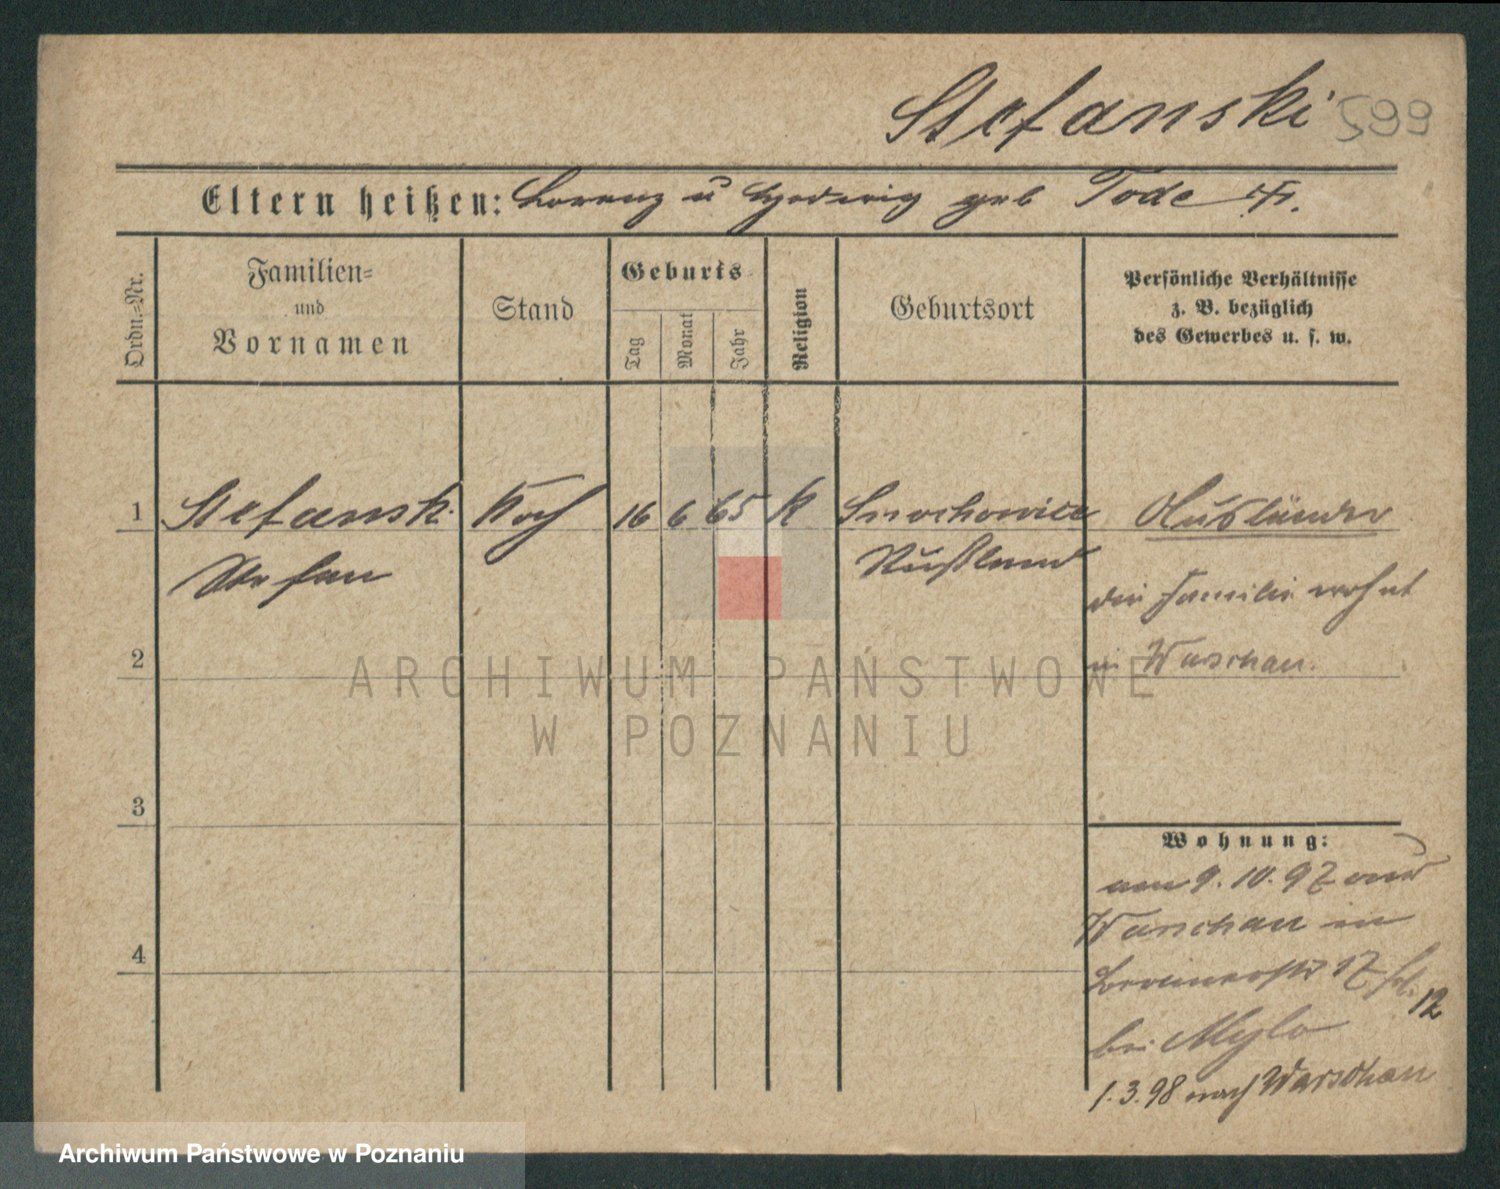 Stefanski 599
Eltern heißen: Lorenz u Hedwig geb Tode
Ordn.=Nr.
Familien=
und
Vornamen
Stand
Geburts
Tag
Monat
Jahr
Religion
Geburtsort
Persönliche Verhältnisse
z. B. bezüglich
des Gewerbes u. s. w.
1 Stefansk. Koch 16 6 65 K Smochowice Ausländer
Stefan Rußland
die Familie wohnt
2 in Warschau.
ARCHIWUM PAŃSTWOWE
W POZNANIU
3
Wohnung:
am 9. 10. 97 aus
Warschau in
4
17
12
bei Mylo
1. 3. 98 nach Warschau
Archiwum Państwowe w Poznaniu